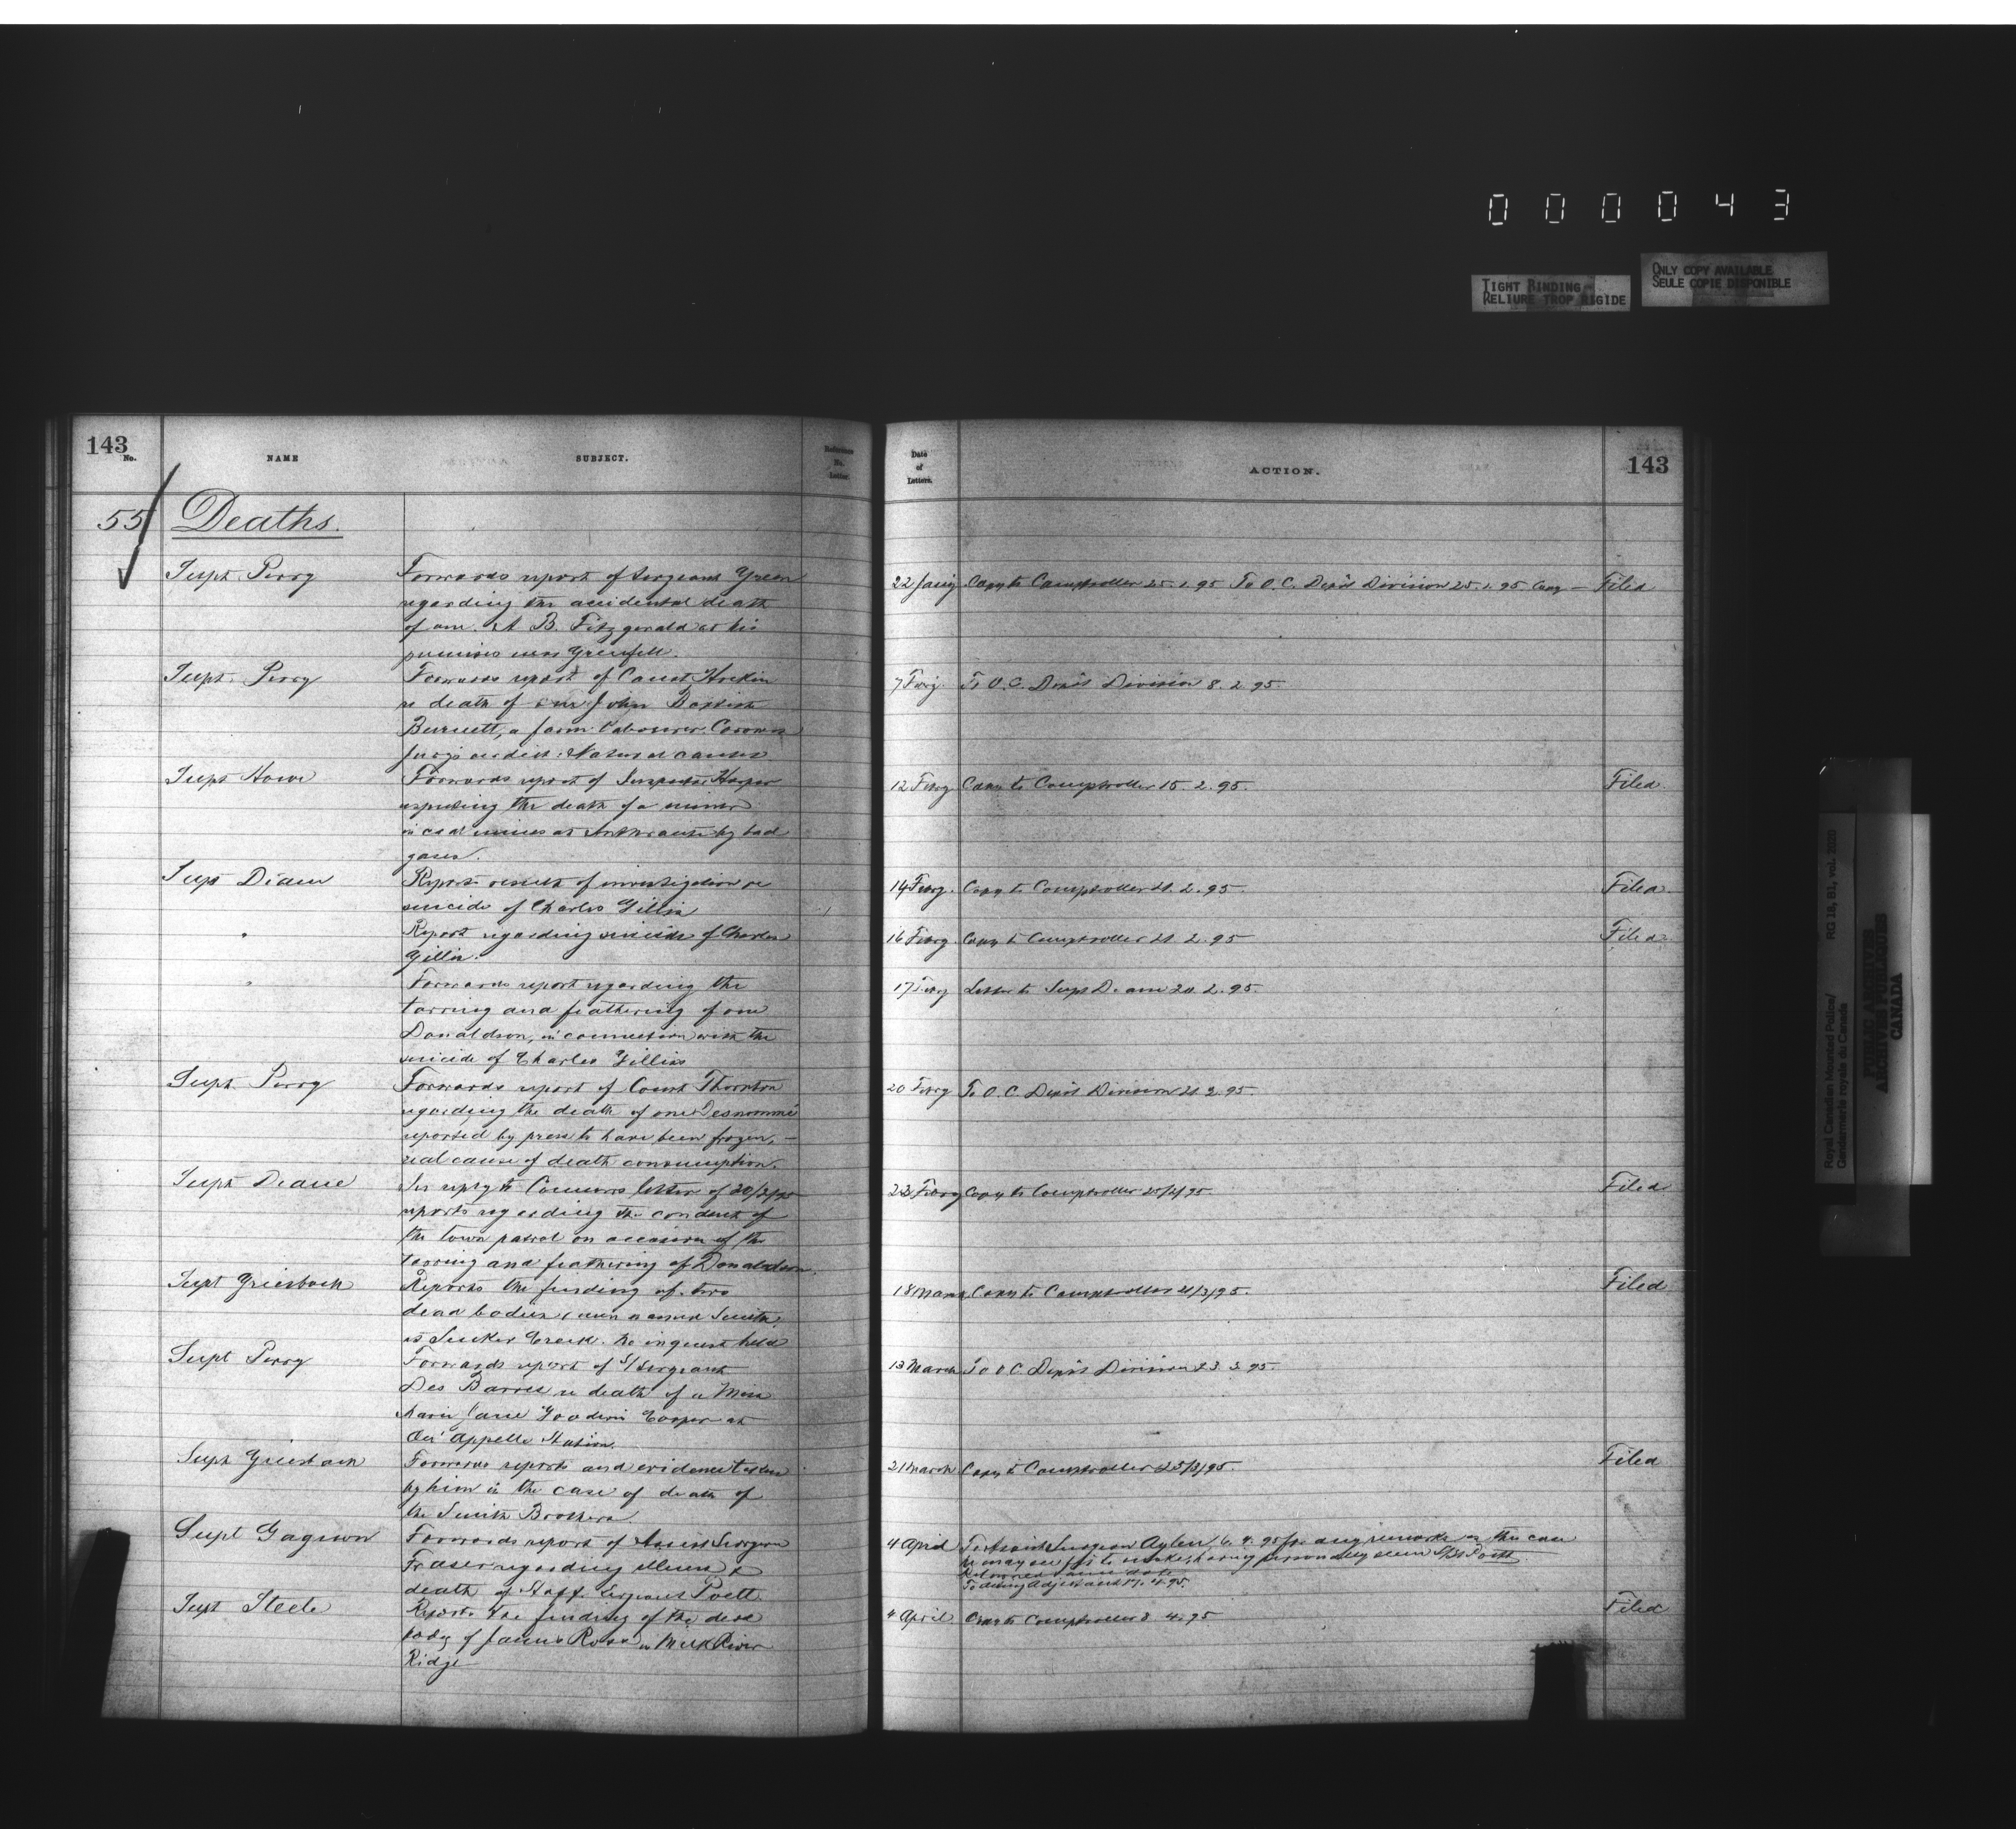 000043
TIGHT BINDING
RELIURE TROP RIGIDE
ONLY COPY AVAILABLE
SEULE COPIE DISPONIBLE
143
No.
NAME
SUBJECT.
Reference
No.
Letter.
55 Deaths.
Supt. Perry
Forwards report of Sergeant Green
regarding the accidental death
of one A. B. Fitzgerald at his
premises near Grenfell.
Supt. Perry
Forwards report of Const Hockin
re death of one John
Burnett, a farm labourer. Coroners
jury's verdict: Natural causes
Supt Howe
Forwards report of Inspector Harper
respecting the death of a miner
in coal mines at Anthracite by bad
gases.
Supt Deane
Reports result of investigation re
suicide of Charles Gillis
"
Report regarding suicide of Charles
Gillis.
"
Forwards report regarding the
tarring and feathering of one
Donaldson, in connection with the
suicide of Charles Gillis
Supt. Perry
Forwards report of Const Thornton
regarding the death of one Desnomme
reported by press to have been frozen, —
real cause of death consumption.
Supt Deane
In reply to Commrs letter of 20/2/95
reports regarding the conduct of
the town patrol on occasion of the
tarring and feathering of Donaldson.
Supt Griesbach
Reports the finding of two
dead bodies, men named Smith,
at Sucker Creek. No inquest held
Supt Perry
Forwards report of S/Sergeant
Des Barres re death of a Miss
Marie Jane Cooper at
Qu'Appelle Station.
Supt Griesbach
Forwards reports and evidence taken
by him in the case of death of
the Smith Brothers.
Supt Gagnon
Forwards report of Assist Surgeon
Fraser regarding illness &
death of Staff Sergeant Poett
Supt Steele
Reports the finding of the dead
body of James Ross in Milk River
Ridge
Date
of
Letters.
ACTION.
143
22 Jany Copy to Comptroller 25.1.95 To O.C. Depôt Division 25.1.95 Copy — Filed
7 Febry. To O.C. Depôt Division 8.2.95.
12 Febry Copy to Comptroller 15.2.95. Filed.
14 Febry. Copy to Comptroller 21.2.95. Filed.
16 Febry. Copy to Comptroller 21.2.95 Filed.
17 Febry Letter to Supt Deane 20.2.95.
20 Febry To O.C. Depôt Division 21.2.95.
23 Febry Copy to Comptroller 25/2/95. Filed
18 March Copy to Comptroller 21/3/95. Filed
13 March To O.C. Depôt Division 23.3.95.
21 March Copy to Comptroller 25/3/95. Filed
4 April To Assist Surgeon Aylen, 6.4.95 for any remarks on this case
he may see fit to make, having personally seen S/Sgt Poett.
Returned same date
To acting Adjutant 17.4.95.
4 April Copy to Comptroller 8.4.95 Filed
Royal Canadian Mounted Police/
Gendarmerie royale du Canada
RG 18, B1, vol. 2020
PUBLIC ARCHIVES
ARCHIVES PUBLIQUES
CANADA